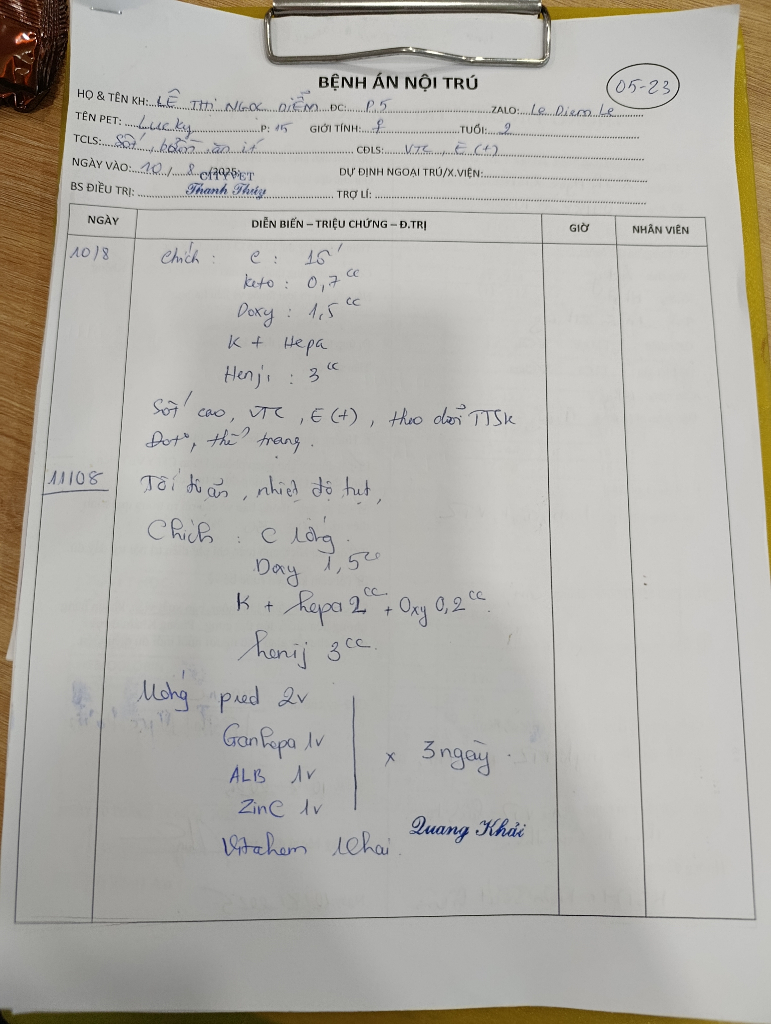 BỆNH ÁN NỘI TRÚ
05-23
HỌ & TÊN KH: LÊ THỊ NGỌC DIỄM ĐC: P.5 ZALO: Le Diem Le
TÊN PET: Lucky P: 15 GIỚI TÍNH: ♀ TUỔI: 2
TCLS: Sốt, ăn ít CĐLS: VTC, E (+)
NGÀY VÀO: 10 / 8 /2025 DỰ ĐỊNH NGOẠI TRÚ/X.VIỆN:
CITYVET
BS ĐIỀU TRỊ: Thanh Thúy TRỢ LÍ:
NGÀY DIỄN BIẾN – TRIỆU CHỨNG – Đ.TRỊ GIỜ NHÂN VIÊN
10/8 Chích : C : 15'
Keto : 0,7 cc
Doxy : 1,5 cc
K + Hepa
Henji : 3 cc
Sốt cao, VTC, E (+), theo dõi TTSK
thể trạng.
11/08 Tối ăn, nhiệt độ tụt,
Chích : C lống.
Doxy 1,5cc
K + hepa 2cc + Oxy 0,2cc.
henij 3cc.
Uống pred 2v
Ganhepa 1v
ALB 1v
x 3 ngày.
ZinC 1v
Quang Khải
Vitahem 1 chai.